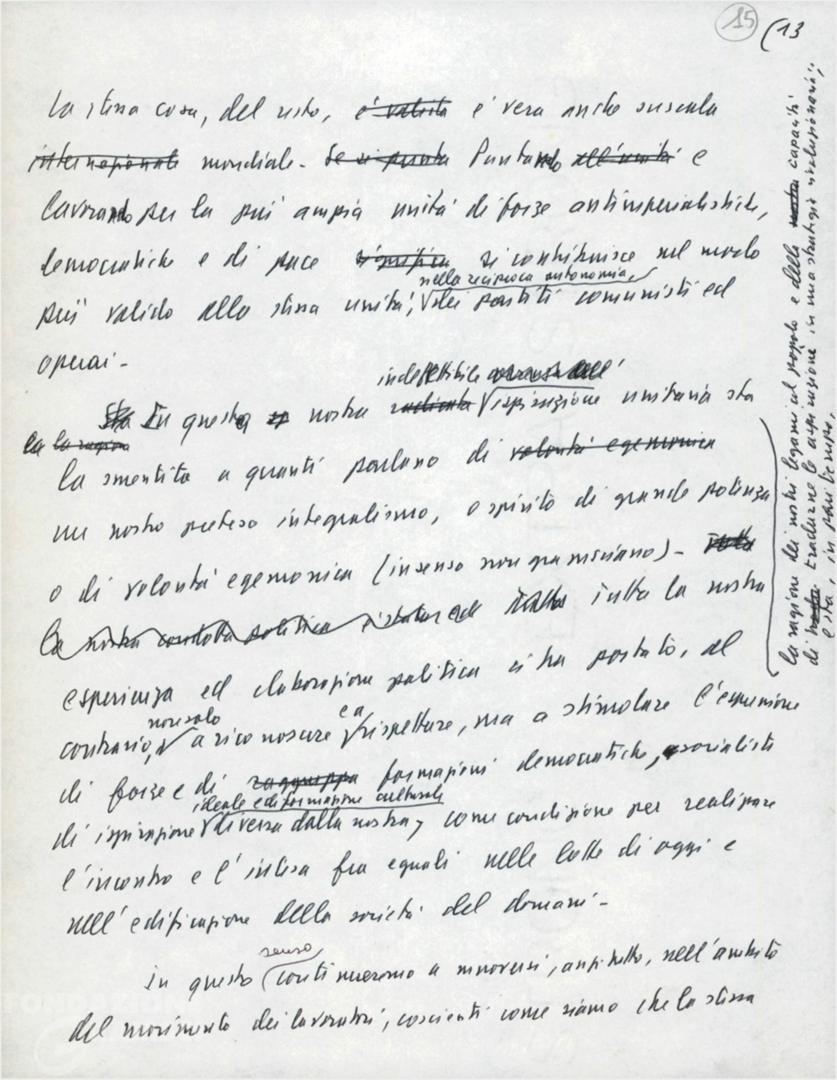 15 (13
La stessa cosa, del resto, è valida è vera anche su scala
internazionale mondiale. Se si punta Puntando all'unità e
lavorando per la più ampia unità di forze antimperialistiche,
democratiche e di pace significa si contribuisce nel modo
nella reciproca autonomia,
più valido alla stessa unità, dei partiti comunisti ed
operai.
indefettibile
Sta In questa nostra ispirazione unitaria sta
la la ragione
la smentita a quanti parlano di volontà egemonica
un nostro preteso integralismo, o spirito di grande potenza
o di volontà egemonica (in senso non gramsciano).
la nostra condotta politica è stata ed tutta la nostra
esperienza ed elaborazione politica ci ha portato, al
non solo e a
contrario, a riconoscere rispettare, ma a stimolare l'espressione
di forze e di formazioni democratiche, socialiste
ideale e di formazione culturale
di ispirazione diversa dalla nostra, come condizione per realizzare
l'incontro e l'intesa fra eguali nelle lotte di oggi e
nell'edificazione della società del domani.
senso
In questo continueremo a muoverci, anzitutto, nell'ambito
del movimento dei lavoratori, coscienti come siamo che la stessa
la ragione dei nostri legami col popolo e della nostra capacità
di tradurne le aspirazioni in una strategia rivoluzionaria;
e sta, in pari tempo,